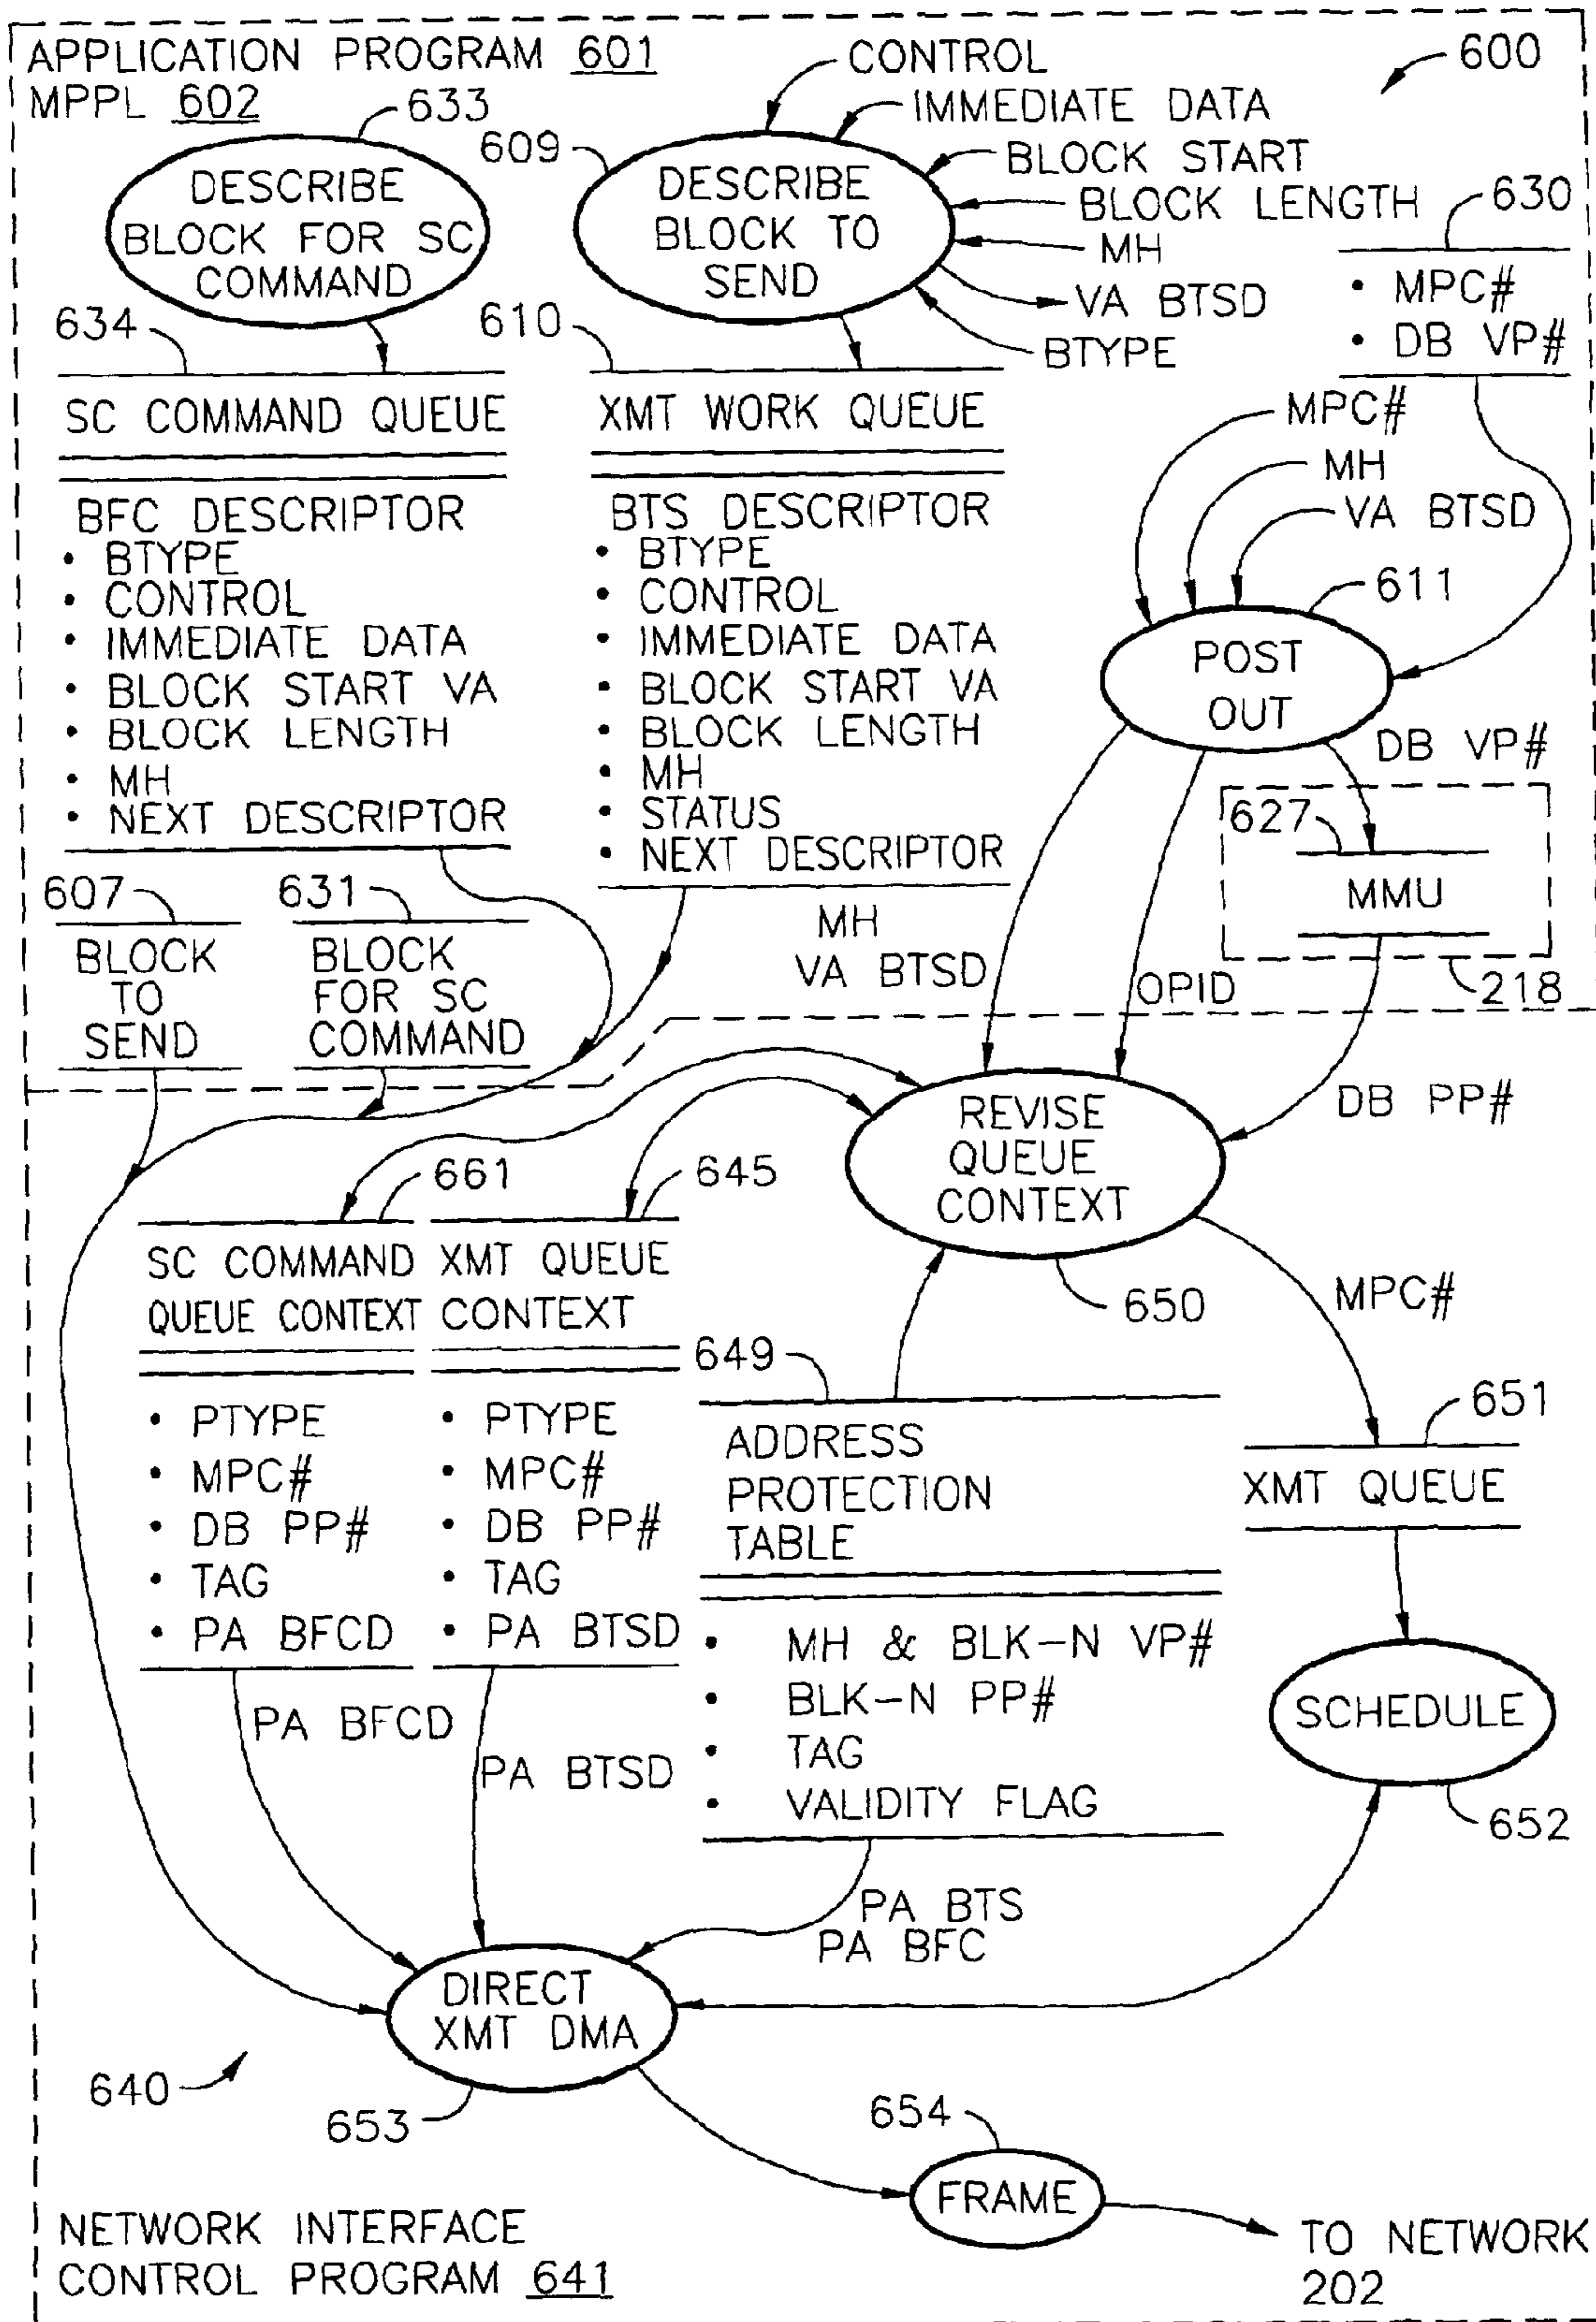 APPLICATION PROGRAM 601
MPPL 602
633
609
CONTROL
IMMEDIATE DATA
BLOCK START
BLOCK LENGTH
MH
VA BTSD
BTYPE
600
630
DESCRIBE
BLOCK FOR SC
COMMAND
DESCRIBE
BLOCK TO
SEND
• MPC#
• DB VP#
634
610
SC COMMAND QUEUE
BFC DESCRIPTOR
• BTYPE
• CONTROL
• IMMEDIATE DATA
• BLOCK START VA
• BLOCK LENGTH
• MH
• NEXT DESCRIPTOR
XMT WORK QUEUE
BTS DESCRIPTOR
• BTYPE
• CONTROL
• IMMEDIATE DATA
• BLOCK START VA
• BLOCK LENGTH
• MH
• STATUS
• NEXT DESCRIPTOR
MPC#
MH
VA BTSD
611
POST
OUT
DB VP#
627
MMU
218
607
BLOCK
TO
SEND
631
BLOCK
FOR SC
COMMAND
MH
VA BTSD
OPID
DB PP#
REVISE
QUEUE
CONTEXT
650
661
645
SC COMMAND
QUEUE CONTEXT
• PTYPE
• MPC#
• DB PP#
• TAG
• PA BFCD
XMT QUEUE
CONTEXT
• PTYPE
• MPC#
• DB PP#
• TAG
• PA BTSD
649
ADDRESS
PROTECTION
TABLE
• MH & BLK-N VP#
• BLK-N PP#
• TAG
• VALIDITY FLAG
MPC#
651
XMT QUEUE
SCHEDULE
652
PA BFCD
PA BTSD
PA BTS
PA BFC
DIRECT
XMT DMA
640
653
654
FRAME
TO NETWORK
202
NETWORK INTERFACE
CONTROL PROGRAM 641